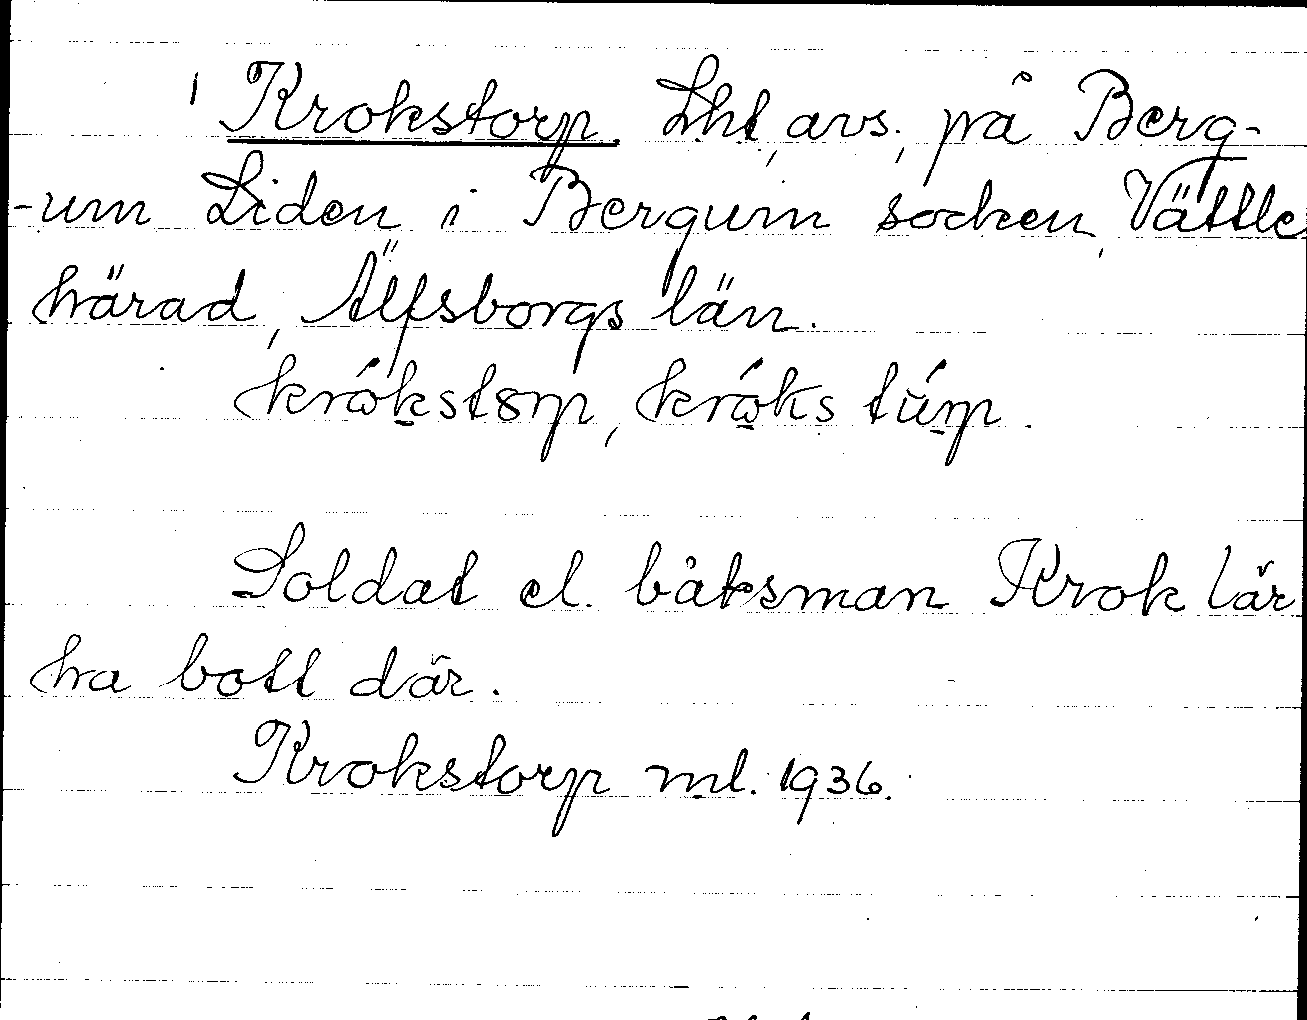 Krokstorp. Lht, avs, på Berg-
-um Liden i Bergum socken, Vättle
härad, Älfsborgs län.
krókstorp, króks túrp.
Soldat el. båtsman Krok lär
ha bott där.
Krokstorp ml. 1936.